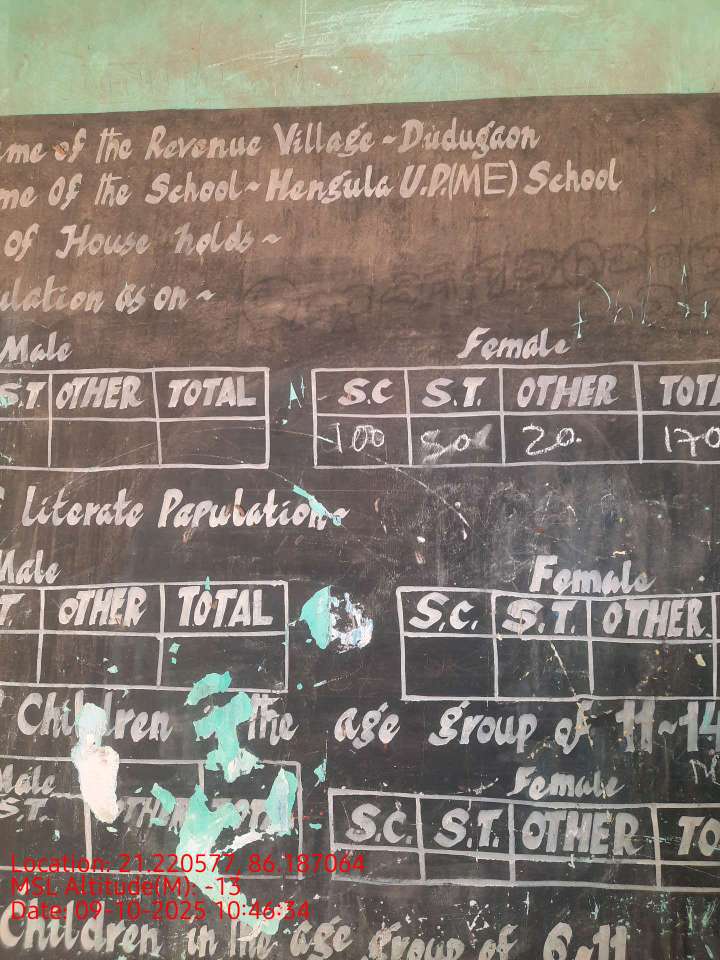 me of the Revenue Village ~ Dudugaon
me Of the School ~ Hengula U.P.(ME) School
of House holds ~
ulation as on ~
Male Female
S.T OTHER TOTAL S.C S.T. OTHER TOTA
100 50 20. 170
f literate Papulation ~
Male Female
T. OTHER TOTAL S.C. S.T. OTHER
f Children in the age group of 11~14
Male Female
S.T. OTHER TOTAL S.C. S.T. OTHER TO
Location: 21.220577, 86.187064
MSL Altitude(M): -13
Date: 09-10-2025 10:46:34
Children in the age group of 6~11